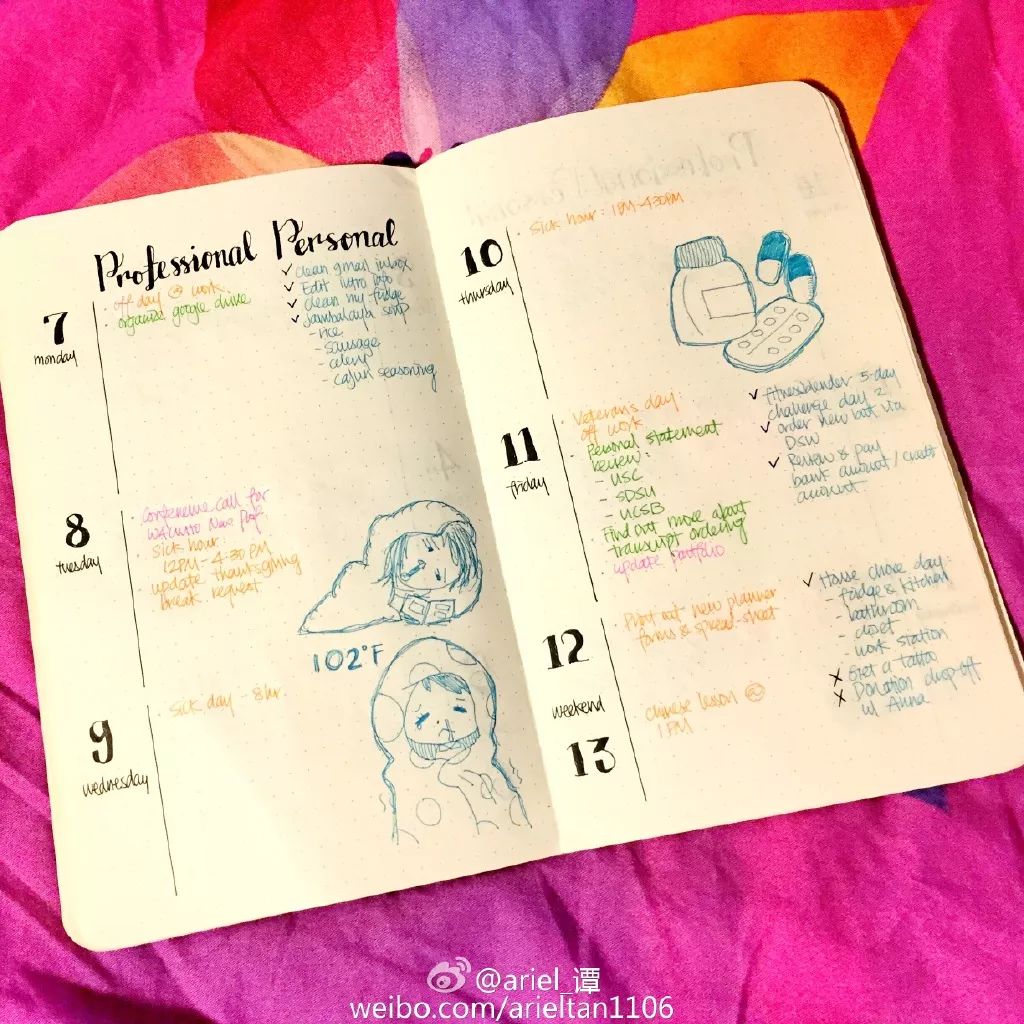 Professional Personal
7
monday
off day @ work.
organize google drive
✓ clean gmail inbox
✓ Edit intro info
✓ clean my fridge
✓ Jambalaya soup
- rice
- sausage
- celery
- cajun seasoning
8
tuesday
Conference call for
New Prof
sick hour:
12PM - 4:30PM
update thanksgiving
break request
102°F
9
wednesday
sick day - 8hr.
10
thursday
sick hour: 1PM-430PM
11
friday
Veterans day
off work
Personal statement
review:
- USC
- SDSU
- UCSB
Find out more about
transcript ordering
update portfolio
✓ fitnessblender 5-day
challenge day 2
✓ order new boot via
DSW
✓ Review & pay
bank amount / credit
amount
12
weekend
13
Print out new planner
forms & spread sheet
chinese lesson @
1PM
✓ House chore day:
- fridge & kitchen
- bathroom
- closet
- work station
x Get a tattoo
x Donation drop-off
w/ Anna
@ariel_谭
weibo.com/arieltan1106